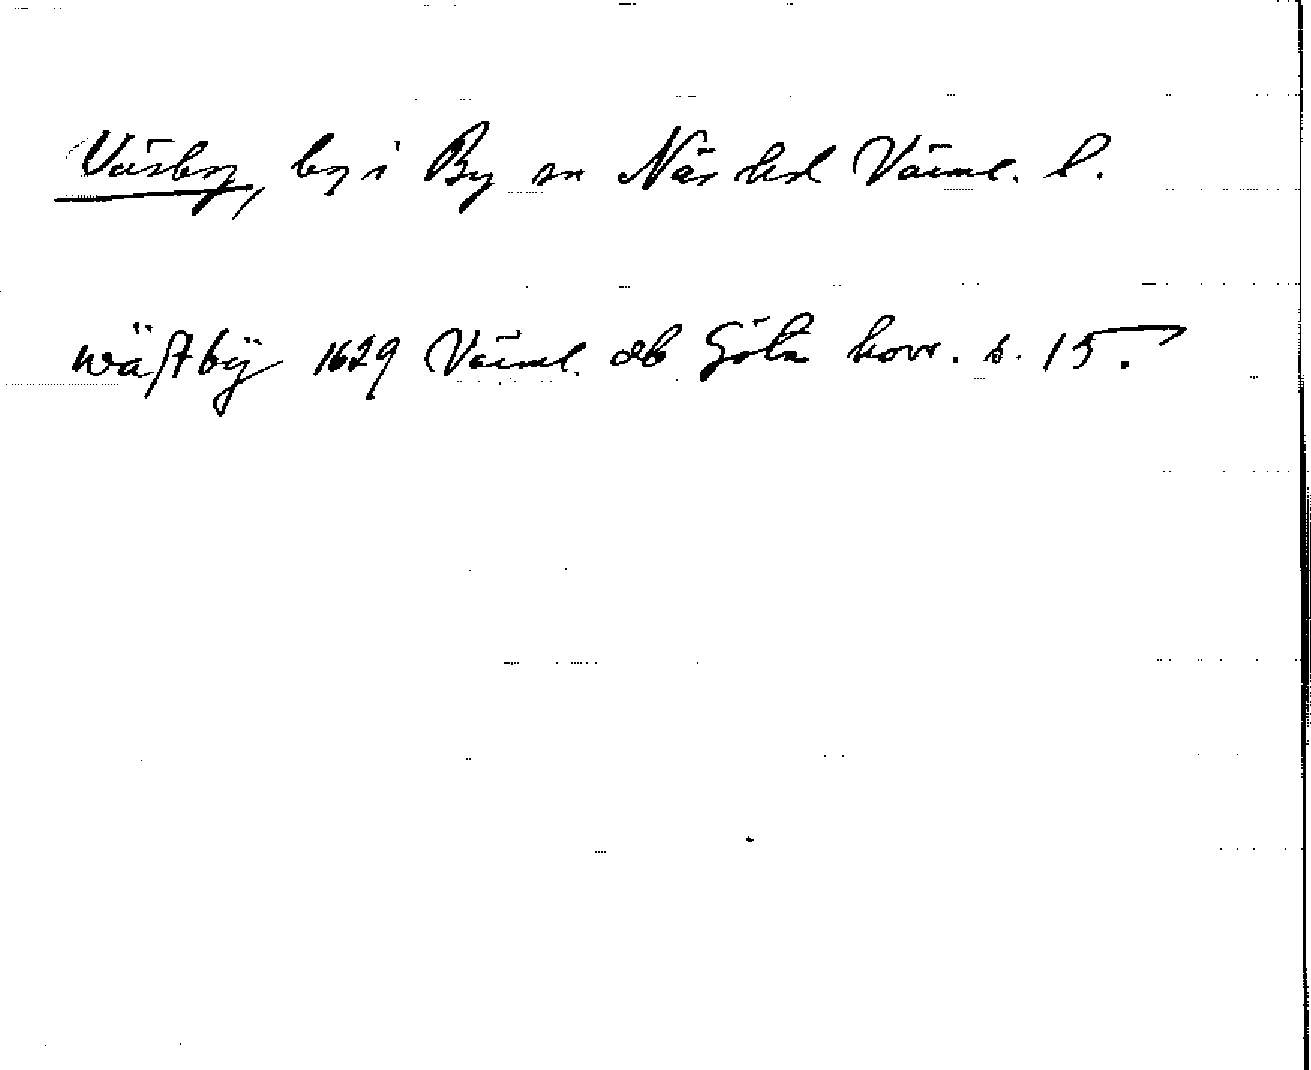 Väsby, by i By sn Näs hd Värml. l.
wäſtbÿ 1629 Värml. db Göta hovr. s. 15.